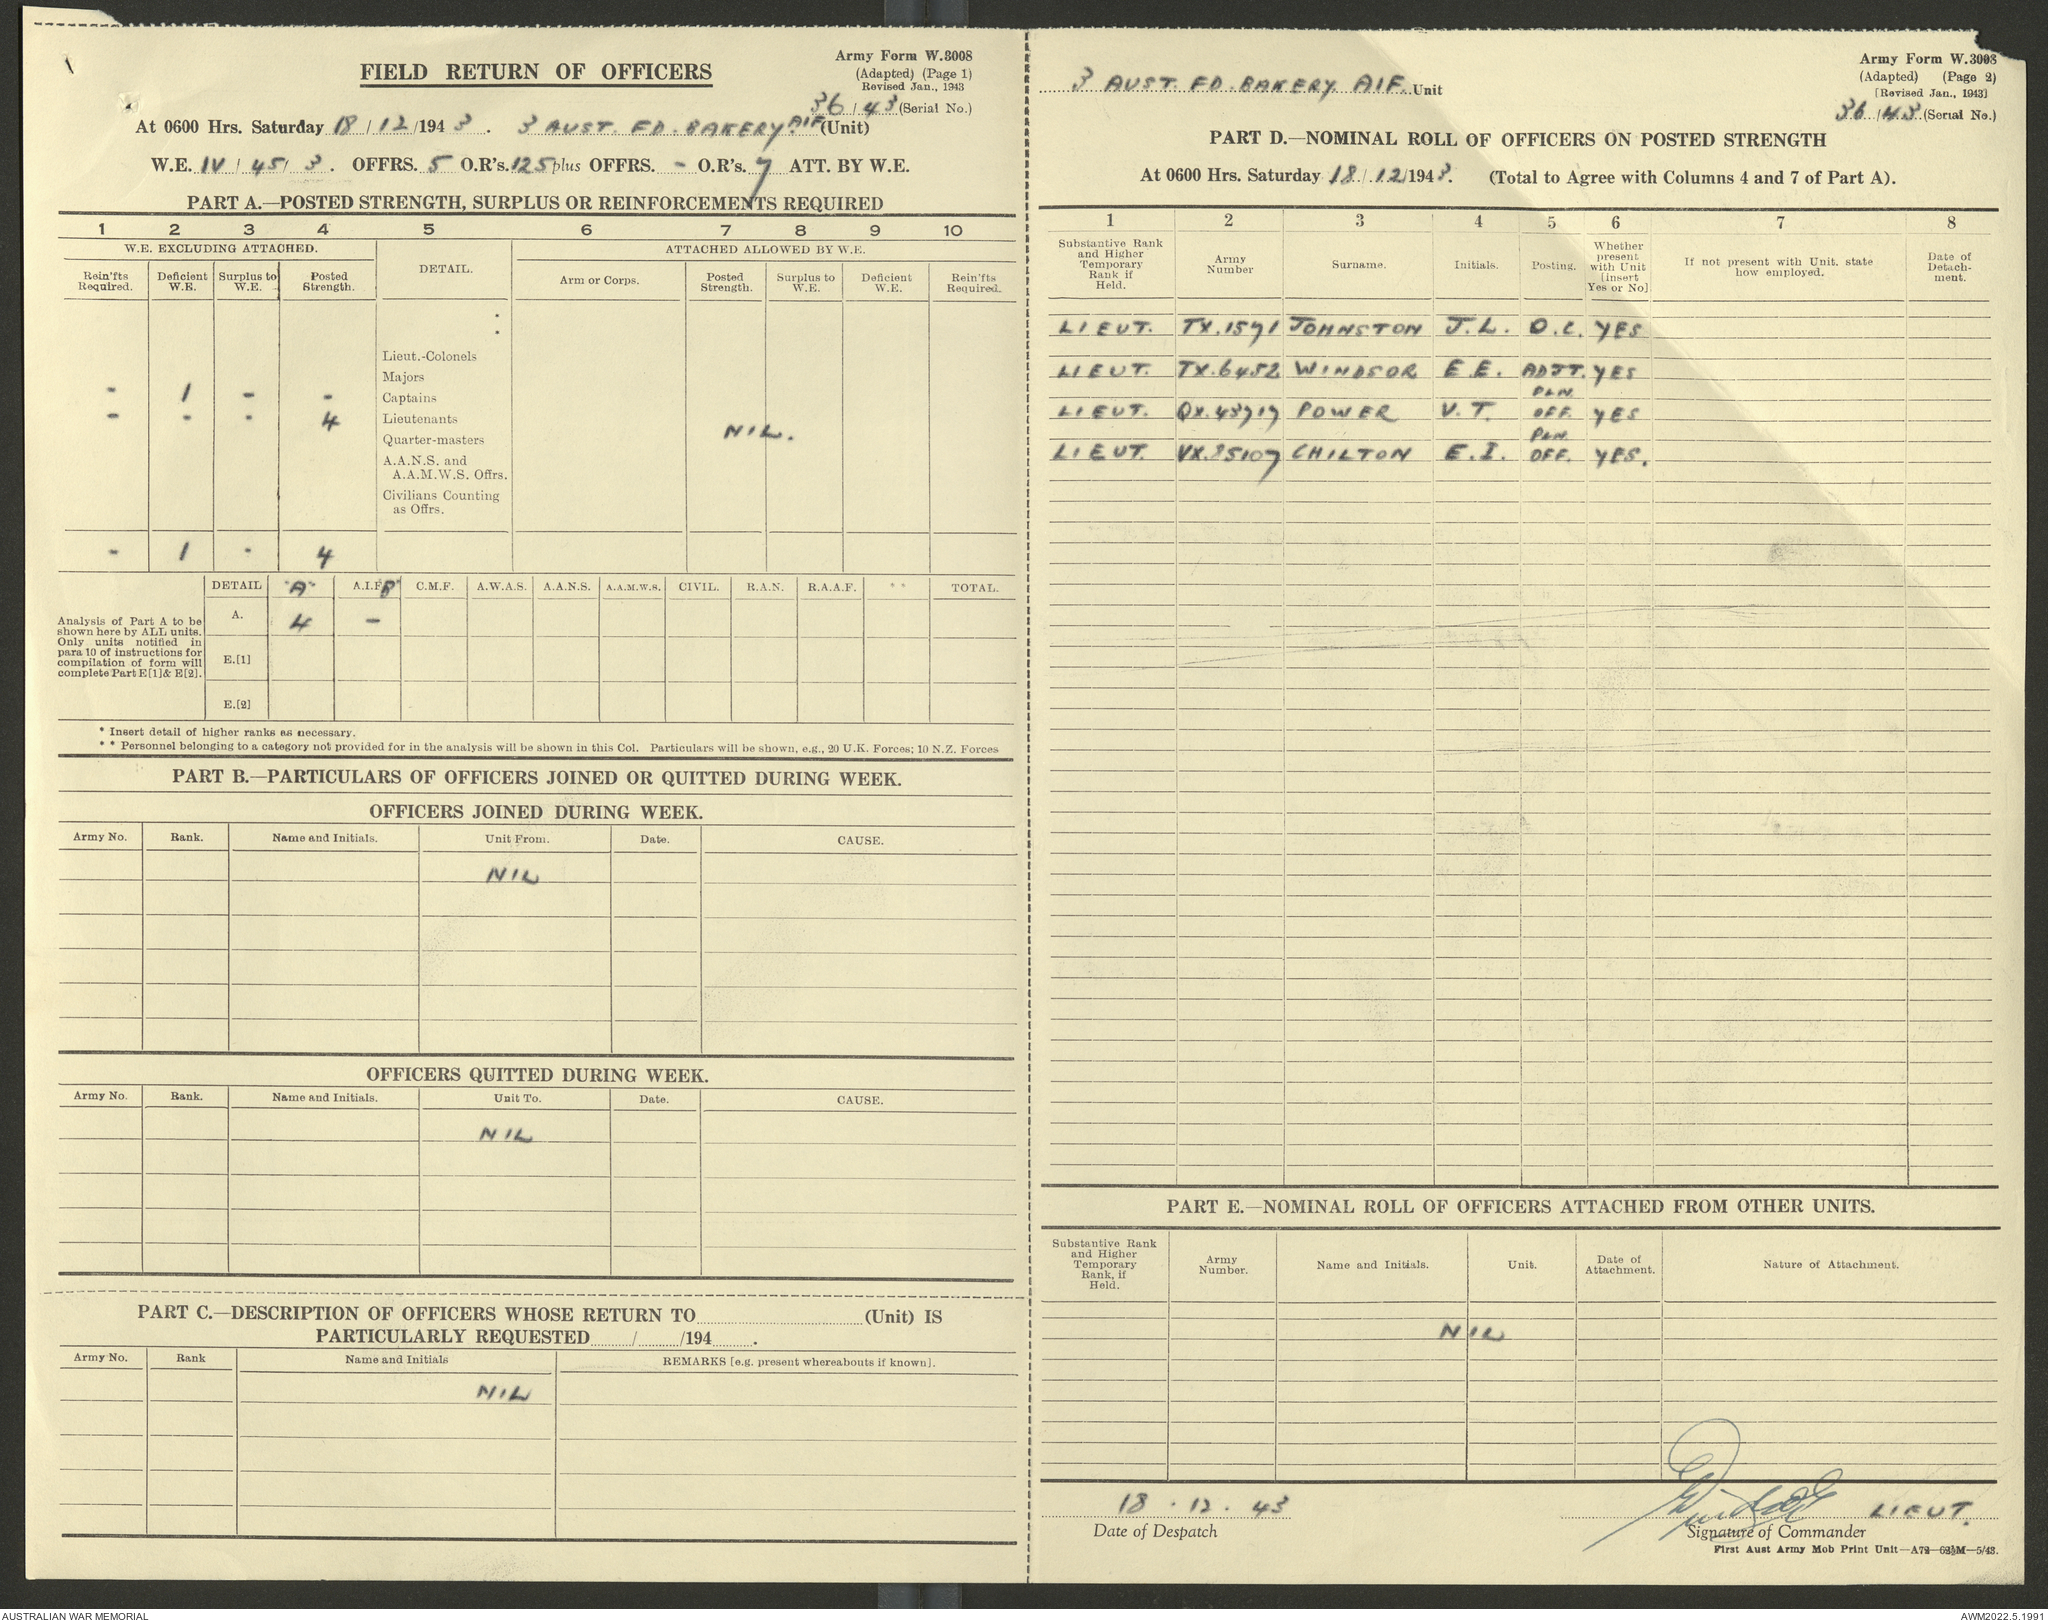 Army Form W.3008
(Adapted) (Page 1)
Revised Jan., 1943
FIELD RETURN OF OFFICERS
36/43 (Serial No.)
At 0600 Hrs. Saturday 18/12/1943. 3 AUST. FD. BAKERY AIF (Unit)
W.E. IV/45/3. OFFRS. 5 O.R's. 125 plus OFFRS. - O.R's. 7 ATT. BY W.E.
PART A.—POSTED STRENGTH, SURPLUS OR REINFORCEMENTS REQUIRED
1 2 3 4 5 6 7 8 9 10
W.E. EXCLUDING ATTACHED. DETAIL. ATTACHED ALLOWED BY W.E.
Rein'fts Required. Deficient W.E. Surplus to W.E. Posted Strength. Arm or Corps. Posted Strength. Surplus to W.E. Deficient W.E. Rein'fts Required.
Lieut.-Colonels
Majors
- 1 - - Captains
- - - 4 Lieutenants
NIL.
Quarter-masters
A.A.N.S. and
A.A.M.W.S. Offrs.
Civilians Counting
as Offrs.
- 1 - 4
DETAIL "A" A.I.F. "B" C.M.F. A.W.A.S. A.A.N.S. A.A.M.W.S. CIVIL. R.A.N. R.A.A.F. * * TOTAL.
Analysis of Part A to be
shown here by ALL units.
Only units notified in
para 10 of instructions for
compilation of form will
complete Part E[1] & E[2].
A. 4 -
E.[1]
E.[2]
* Insert detail of higher ranks as necessary.
* * Personnel belonging to a category not provided for in the analysis will be shown in this Col. Particulars will be shown, e.g., 20 U.K. Forces; 10 N.Z. Forces
PART B.—PARTICULARS OF OFFICERS JOINED OR QUITTED DURING WEEK.
OFFICERS JOINED DURING WEEK.
Army No. Rank. Name and Initials. Unit From. Date. CAUSE.
NIL
OFFICERS QUITTED DURING WEEK.
Army No. Rank. Name and Initials. Unit To. Date. CAUSE.
NIL
PART C.—DESCRIPTION OF OFFICERS WHOSE RETURN TO (Unit) IS
PARTICULARLY REQUESTED / /194 .
Army No. Rank Name and Initials REMARKS [e.g. present whereabouts if known].
NIL
Army Form W.3008
(Adapted) (Page 2)
[Revised Jan., 1943]
3 AUST. FD. BAKERY AIF. Unit
36/43 (Serial No.)
PART D.—NOMINAL ROLL OF OFFICERS ON POSTED STRENGTH
At 0600 Hrs. Saturday 18/12/1943. (Total to Agree with Columns 4 and 7 of Part A).
1 2 3 4 5 6 7 8
Substantive Rank and Higher Temporary Rank if Held. Army Number Surname. Initials. Posting. Whether present with Unit [insert Yes or No] If not present with Unit, state how employed. Date of Detach-ment.
LIEUT. TX.1571 JOHNSTON J.L. O.C. YES
LIEUT. TX.6452 WINDSOR E.E. ADJT. YES
LIEUT. QX.43717 POWER V.T. PLN. OFF. YES
LIEUT. VX.85107 CHILTON E.I. PLN. OFF. YES.
PART E.—NOMINAL ROLL OF OFFICERS ATTACHED FROM OTHER UNITS.
Substantive Rank and Higher Temporary Rank, if Held. Army Number. Name and Initials. Unit. Date of Attachment. Nature of Attachment.
NIL
18 . 12 . 43 LIEUT.
Date of Despatch Signature of Commander
First Aust Army Mob Print Unit—A72—62½M—5/43.
AUSTRALIAN WAR MEMORIAL AWM2022.5.1991